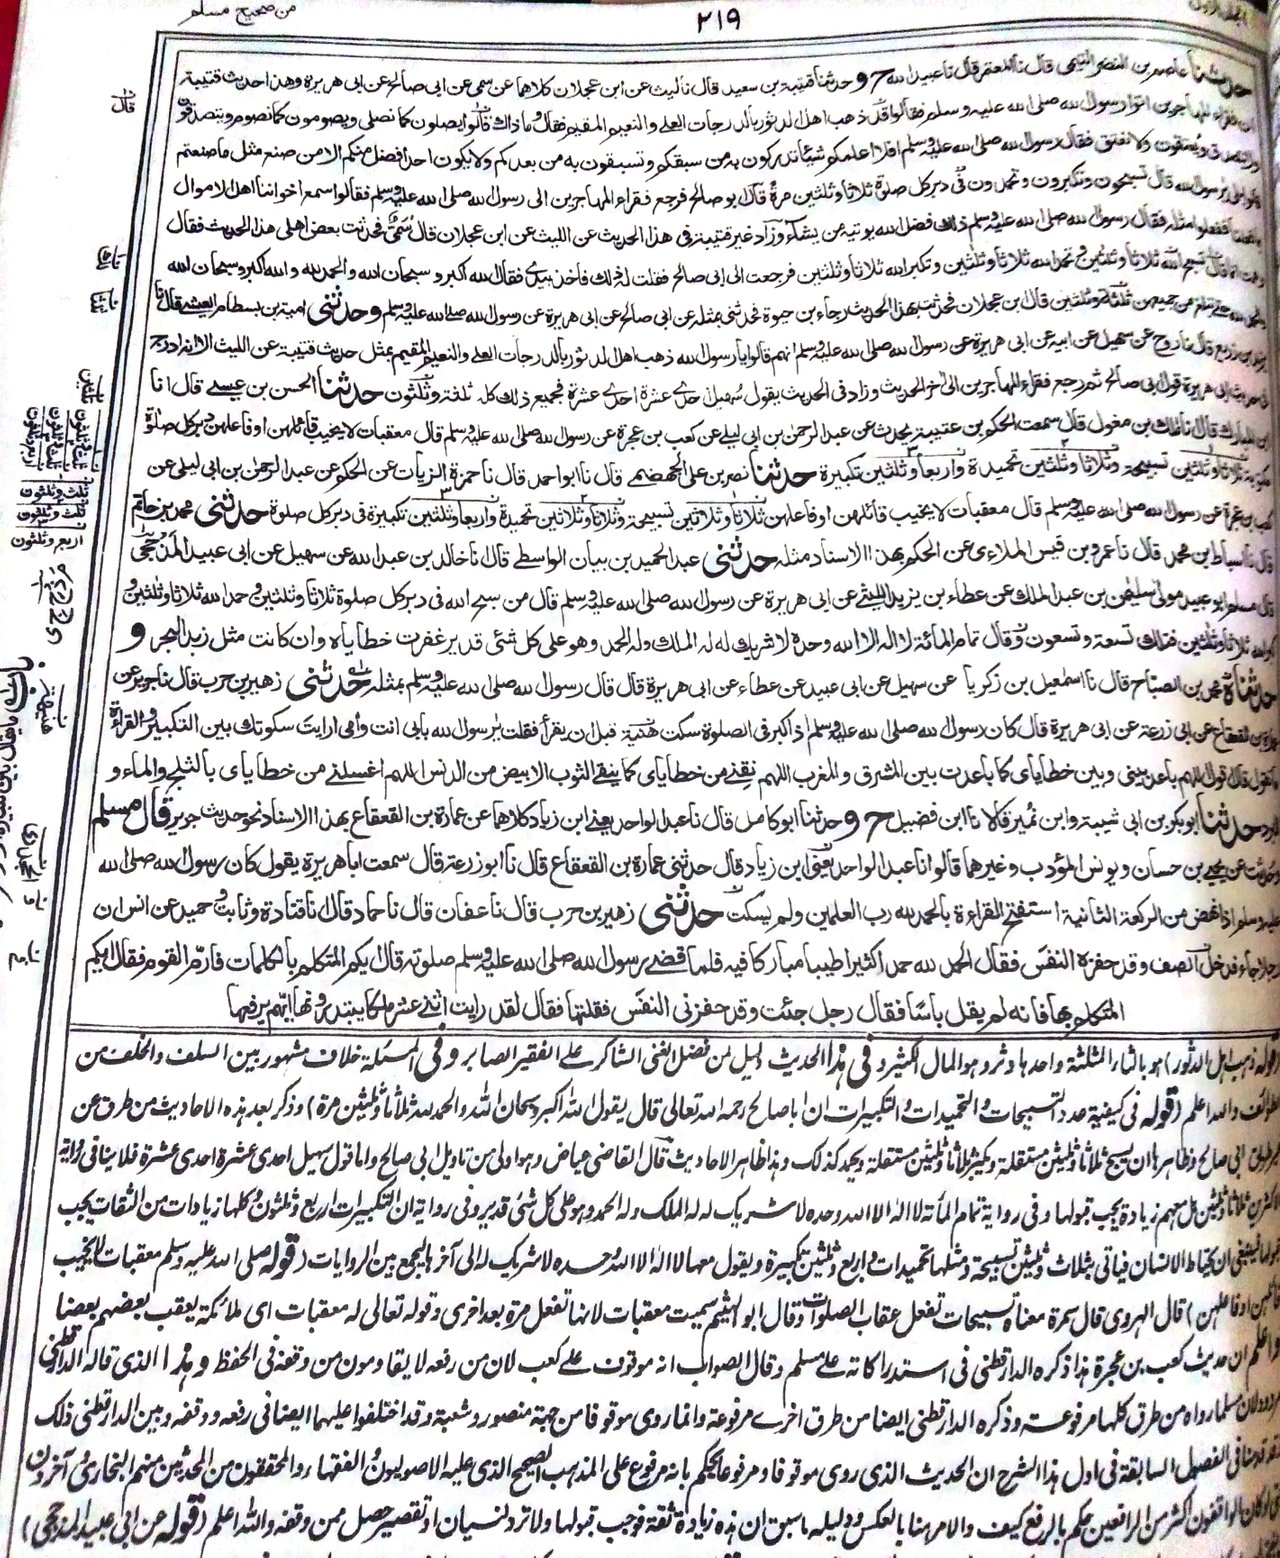 من صحيح مسلم
٢١٩
حدثنا عاصم بن النضر التيمي قال نا المعتمر قال نا عبيد الله ح و حدثنا قتيبة بن سعيد قال نا ليث عن ابن عجلان كلاهما عن سمي عن ابي صالح عن ابي هريرة وهذا حديث قتيبة
ان فقراء المهاجرين اتوا رسول الله صلى الله عليه وسلم فقالوا قد ذهب اهل الدثور بالدرجات العلى والنعيم المقيم فقال وما ذاك قالوا يصلون كما نصلي ويصومون كما نصوم ويتصدقون
ولا نتصدق ويعتقون ولا نعتق فقال رسول الله صلى الله عليه وسلم افلا اعلمكم شيئا تدركون به من سبقكم وتسبقون به من بعدكم ولا يكون احد افضل منكم الا من صنع مثل ما صنعتم
قالوا بلى يرسول الله قال تسبحون وتكبرون وتحمدون في دبر كل صلوة ثلاثا وثلثين مرة قال ابو صالح فرجع فقراء المهاجرين الى رسول الله صلى الله عليه وسلم فقالوا سمع اخواننا اهل الاموال
بما فعلنا ففعلوا مثله فقال رسول الله صلى الله عليه وسلم ذلك فضل الله يوتيه من يشاء وزاد غير قتيبة في هذا الحديث عن الليث عن ابن عجلان قال سمي فحدثت بعض اهلي هذا الحديث فقال
وهمت انما قال تسبح الله ثلاثا وثلثين وتحمد الله ثلاثا وثلثين وتكبر الله ثلاثا وثلثين فرجعت الى ابي صالح فقلت له ذلك فاخذ بيدي فقال الله اكبر وسبحان الله والحمد لله والله اكبر وسبحان الله
والحمد لله حتى تبلغ من جميعهن ثلثة وثلثين قال ابن عجلان فحدثت بهذا الحديث رجاء بن حيوة فحدثني بمثله عن ابي صالح عن ابي هريرة عن رسول الله صلى الله عليه وسلم وحدثني امية بن بسطام العيشي قال نا
يزيد بن زريع قال نا روح عن سهيل عن ابيه عن ابي هريرة عن رسول الله صلى الله عليه وسلم انهم قالوا يا رسول الله ذهب اهل الدثور بالدرجات العلى والنعيم المقيم بمثل حديث قتيبة عن الليث الا انه ادرج
في حديث ابي هريرة قول ابي صالح ثم رجع فقراء المهاجرين الى اخر الحديث وزاد في الحديث يقول سهيل احدى عشرة احدى عشرة فجميع ذلك كله ثلثة وثلثون حدثنا الحسن بن عيسى قال انا
ابن المبارك قال نا مالك بن مغول قال سمعت الحكم بن عتيبة يحدث عن عبد الرحمن بن ابي ليلى عن كعب بن عجرة عن رسول الله صلى الله عليه وسلم قال معقبات لا يخيب قائلهن او فاعلهن دبر كل صلوة
مكتوبة ثلاثا وثلثين تسبيحة وثلاثا وثلثين تحميدة واربعا وثلثين تكبيرة حدثنا نصر بن علي الجهضمي قال نا ابو احمد قال نا حمزة الزيات عن الحكم عن عبد الرحمن بن ابي ليلى عن
كعب بن عجرة عن رسول الله صلى الله عليه وسلم قال معقبات لا يخيب قائلهن او فاعلهن ثلاثا وثلاثين تسبيحة وثلاثا وثلاثين تحميدة واربعا وثلثين تكبيرة في دبر كل صلوة حدثني محمد بن حاتم
قال نا اسباط بن محمد قال نا عمرو بن قيس الملاءى عن الحكم بهذا الاسناد مثله حدثني عبد الحميد بن بيان الواسطي قال انا خالد بن عبد الله عن سهيل عن ابي عبيد المذحجي
قال مسلم ابو عبيد مولى سليمن بن عبد الملك عن عطاء بن يزيد الليثي عن ابي هريرة عن رسول الله صلى الله عليه وسلم قال من سبح الله في دبر كل صلوة ثلاثا وثلثين وحمد الله ثلاثا وثلثين و
كبر الله ثلاثا وثلثين فتلك تسعة وتسعون وقال تمام المائة لا اله الا الله وحده لا شريك له له الملك وله الحمد وهو على كل شئ قدير غفرت خطاياه وان كانت مثل زبد البحر و
حدثناه محمد بن الصباح قال نا اسمعيل بن زكريا عن سهيل عن ابي عبيد عن عطاء عن ابي هريرة قال قال رسول الله صلى الله عليه وسلم بمثله حدثني زهير بن حرب قال نا جرير عن
عمارة بن القعقاع عن ابي زرعة عن ابي هريرة قال كان رسول الله صلى الله عليه وسلم اذا كبر في الصلوة سكت هنية قبل ان يقرأ فقلت يرسول الله بابي انت وأمي ارايت سكوتك بين التكبير والقراءة
ما تقول قال اقول اللهم باعد بيني وبين خطاياى كما باعدت بين المشرق والمغرب اللهم نقني من خطاياى كما ينقى الثوب الابيض من الدنس اللهم اغسلني من خطاياى بالثلج والماء و
البرد حدثنا ابو بكر بن ابي شيبة وابن نمير قالا نا ابن فضيل ح وحدثنا ابو كامل قال نا عبد الواحد يعني ابن زياد كلاهما عن عمارة بن القعقاع بهذا الاسناد نحو حديث جرير قال مسلم
وحدثت عن يحيى بن حسان ويونس المؤدب وغيرهما قالوا نا عبد الواحد يعني ابن زياد قال حدثني عمارة بن القعقاع قال نا ابو زرعة قال سمعت ابا هريرة يقول كان رسول الله صلى الله
عليه وسلم اذا نهض من الركعة الثانية استفتح القراءة بالحمد لله رب العلمين ولم يسكت حدثني زهير بن حرب قال نا عفان قال نا حماد قال انا قتادة وثابت وحميد عن انس ان
رجلا جاء فدخل الصف وقد حفزه النفس فقال الحمد لله حمدا كثيرا طيبا مباركا فيه فلما قضى رسول الله صلى الله عليه وسلم صلوته قال ايكم المتكلم بالكلمات فارم القوم فقال ايكم
المتكلم بها فانه لم يقل باسا فقال رجل جئت وقد حفزني النفس فقلتها فقال لقد رايت اثني عشر ملكا يبتدرونها ايهم يرفعها
(قوله ذهب اهل الدثور) هو بالثاء المثلثة واحدها دثر وهو المال الكثير وفي هذا الحديث دليل لمن فضل الغني الشاكر على الفقير الصابر وفي المسئلة خلاف مشهور بين السلف والخلف من
الطوائف والله اعلم (قوله في كيفية عدد التسبيحات والتحميدات والتكبيرات ان ابا صالح رحمه الله تعالى قال يقول الله اكبر وسبحان الله والحمد لله ثلاثا وثلثين مرة) وذكر بعد هذه الاحاديث من طرق عن
غير طريق ابي صالح وظاهرها ان يسبح ثلاثا وثلثين مستقلة ويكبر ثلاثا وثلثين مستقلة ويحمد كذلك وهذا ظاهر الاحاديث قال القاضي عياض وهو اولى من تاويل ابي صالح واما قول سهيل احدى عشرة احدى عشرة فلا ينافي رواية
الاكثرين ثلاثا وثلثين بل معهم زيادة يجب قبولها وفي رواية تمام المأته لا اله الا الله وحده لا شريك له له الملك وله الحمد وهو على كل شئ قدير وفي رواية ان التكبيرات اربع وثلثون وكلها زيادات من الثقات يجب
قبولها فينبغي ان يحتاط الانسان فيأتي بثلاث وثلثين تسبيحة ومثلها تحميدات واربع وثلثين تكبيرة ويقول معها لا اله الا الله وحده لا شريك له الى آخرها ليجمع بين الروايات (قوله صلى الله عليه وسلم معقبات لا يخيب
قائلهن او فاعلهن) قال الهروي قال سمرة معناه تسبيحات تفعل عقاب الصلوات وقال ابو الهيثم سميت معقبات لانها تفعل مرة بعد اخرى وقوله تعالى له معقبات اى ملائكة يعقب بعضهم بعضا
واعلم ان حديث كعب بن عجرة هذا ذكره الدارقطني في استدراكاته على مسلم وقال الصواب انه موقوف على كعب لان من رفعه لا يقاومون من وقفه في الحفظ وهذا الذي قاله الدارقطني
مردود لان مسلما رواه من طرق كلها مرفوعة وذكره الدارقطني ايضا من طرق اخرى مرفوعة وانما روى موقوفا من جهة منصور وشعبة وقد اختلفوا عليهما ايضا في رفعه ووقفه وبين الدارقطني ذلك
وقد قدمنا في الفصول السابقة في اول هذا الشرح ان الحديث الذي روى موقوفا ومرفوعا يحكم بانه مرفوع على المذهب الصحيح الذي عليه الاصوليون والفقهاء والمحققون من المحدثين منهم البخارى وآخرون
حتى لو كان الواقفون اكثر من الرافعين حكم بالرفع كيف والامر هنا بالعكس ودليله ما سبق ان هذه زيادة ثقة فوجب قبولها ولا ترد لنسيان او تقصير حصل ممن وقفه والله اعلم (قوله عن ابي عبيد المذحجي)